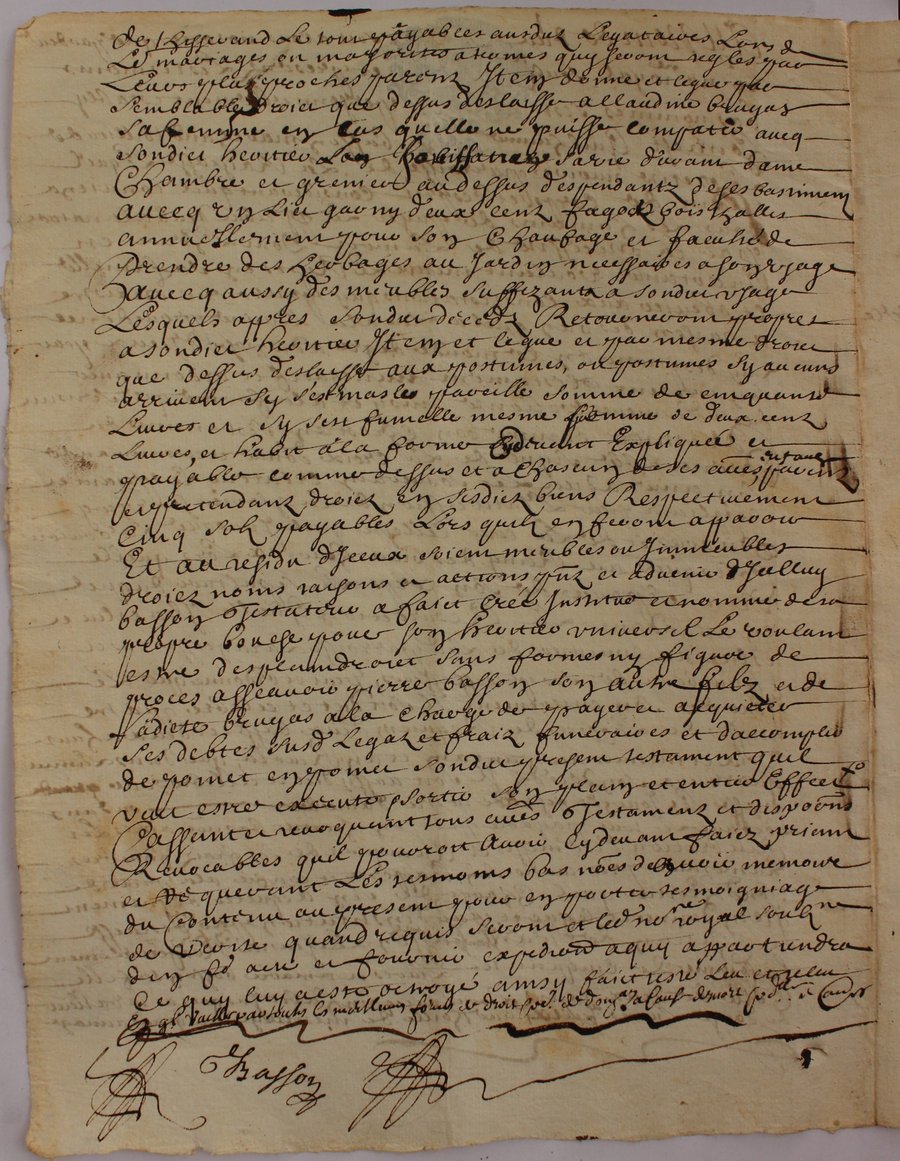 de le tout payables ausdits Legataires Lors de
Le mariages ou majorité a termes quy seront regles par
Leurs plus proches parens Item donne et legue par
semblable droict que dessus deslaisse a Claudine brugas
sa femme en cas quelle ne puisse compatir avecq
sondict heritier son habittation sa vie durant d'une
Chambre et grenier au dessus despendantz de ses bastimens
avecq un Lieu garny deux cent fagotz bois
annuellement pour son Chaufage et faculté de
Prendre des herbages au Jardin necessaires a son usage
avecq aussy des meubles suffizants a sondict usage
Lesquels appres sondict decedz Retourneront propres
a sondict heritier Item et legue et par mesme droict
que dessus deslaisse aux postumes, ou postumes sy aucuns
arrivent sy s'est masles pareille somme de cinquante
Livres et sy s'est fumelle mesme somme de deux cent
Livres, et habit a la forme Expliquee et
payable comme dessus et a Chascun de ses autres parens
et pretendantz droictz en sesdictz biens Respectivement
Cinq solz payables Lors quilz en feront apparoir
Et au residu d'Iceux soient meubles ou Immeubles
droictz noms raisons et actions pnts et advenir d'Icelluy
basson Testateur a faict creé Institué et nommé de sa
propre bouche pour son heritier universel Le voulant
estre de plein droict sans forme ny figure de
proces assçavoir pierre basson son autre filz et de
ladicte brugas a la Charge de payer et acquicter
ses debtes susd Legaz et fraiz funeraires et d'accomplir
de point en point sondict present testament quil
veut estre executé sortir son plain et entier Effect
Cassant et revoquant tous autres Testamens et disponns
Revocables quil pourroit Avoir cy devant faictz priant
et Requerant Les tesmoins bas només davoir memoire
du Contenu au present pour en porter tesmoigniage
de verité quand requis seront et led nore royal soubzné
den fe acte et fournir expedition a quy appartiendra
Ce quy luy a esté octroyé ainsy faict leu et releu
vaille par toutes les meilleurs formes de droict de
Basson